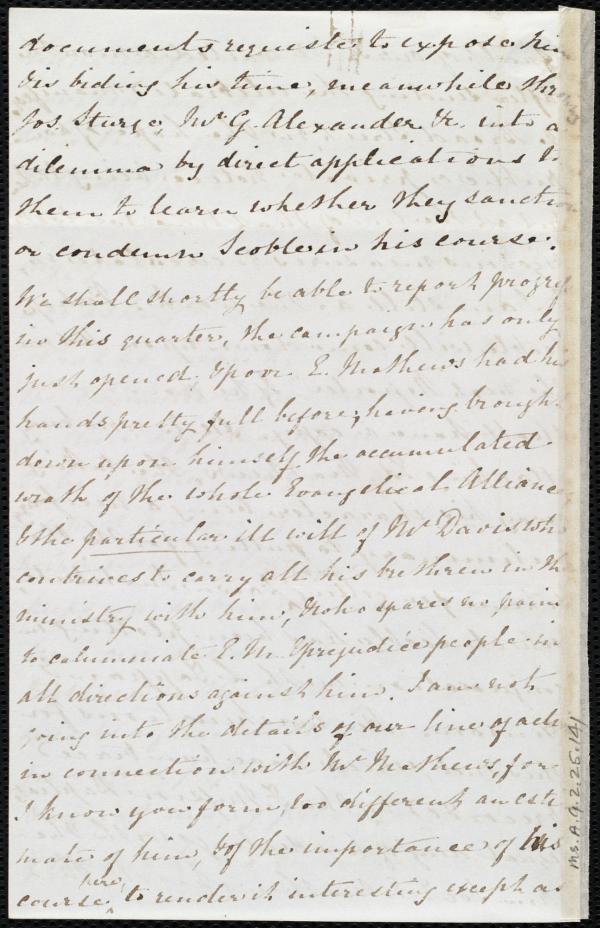 documents requisite to expose him
Vis biding his time, meanwhile thro
Jos. Sturge, Mr G. Alexander &c. into a
dilemma by direct applications to
them to learn whether they sanction
or condemn Scoble in his course.
We shall shortly be able to report progress
in this quarter, the campaign has only
just opened, & poor E. Mathews had his
hands pretty full before; having brought
down upon himself the accumulated
wrath of the whole Evangelical Alliance
& the particular ill will of Mr Davis who
contrives to carry all his brethren in the
ministry with him, & who spares no pain
to calumniate E. M. & prejudice people in
all directions against him. I am not
going into the details of our line of acti
in connection with Mr Mathews, for
I know you form too different an esti
mate of him, & of the importance of his
course here, to render it interesting except as
Ms. A. 9. 2. 26. 14